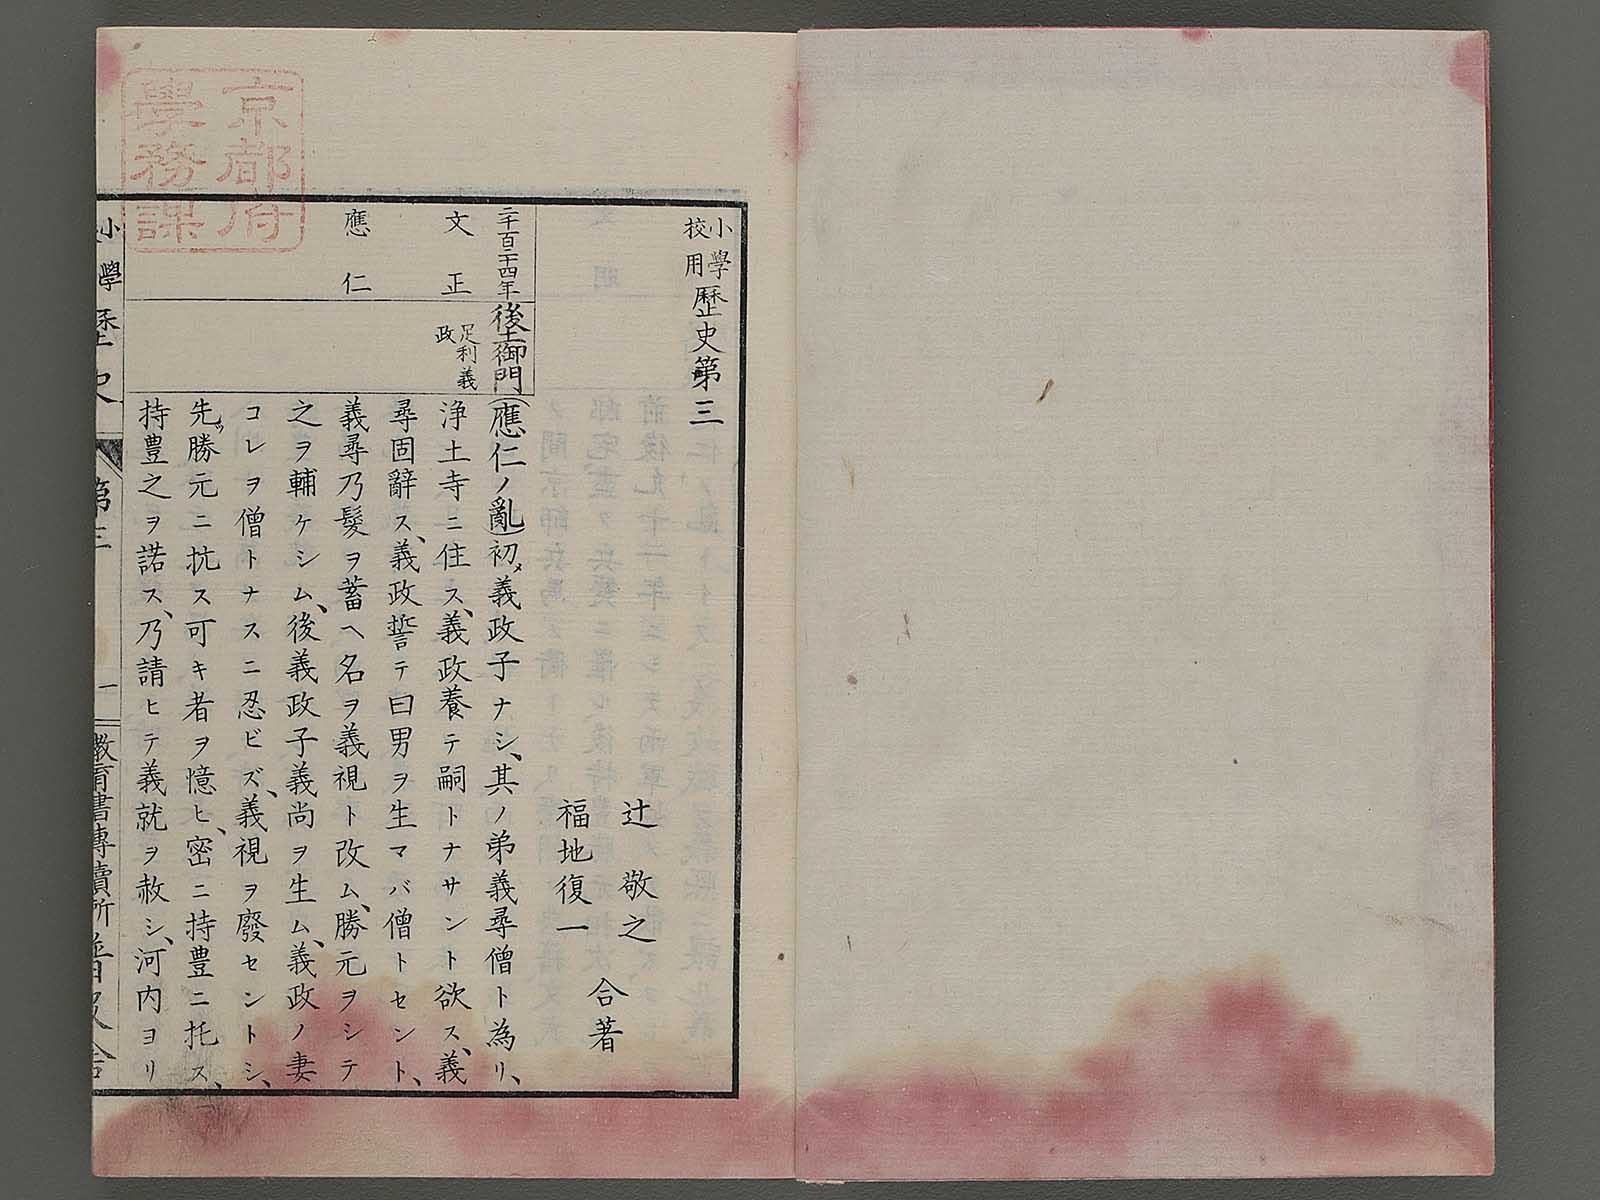 小學校用歷史第三
辻敬之
福地復一
合著
二千百二十四年
後土御門
(應仁ノ亂)初メ義政子ナシ、其ノ弟義尋僧ト為リ、
文正
足利義政
浄土寺ニ住ス、義政養テ嗣トナサント欲ス、義
尋固辭ス、義政誓テ曰男ヲ生マバ僧トセント、
應仁
義尋乃髮ヲ蓄ヘ名ヲ義視ト改ム、勝元ヲシテ
之ヲ輔ケシム、後義政子義尚ヲ生ム、義政ノ妻
コレヲ僧トナスニ忍ビズ、義視ヲ廢セントシ、
先ヅ勝元ニ抗ス可キ者ヲ憶ヒ、密ニ持豊ニ托ス、
持豊之ヲ諾ス、乃請ヒテ義就ヲ赦シ、河内ヨリ
小學
歷史
第三
一
教育書專賣所普及舍
京都府
學務課